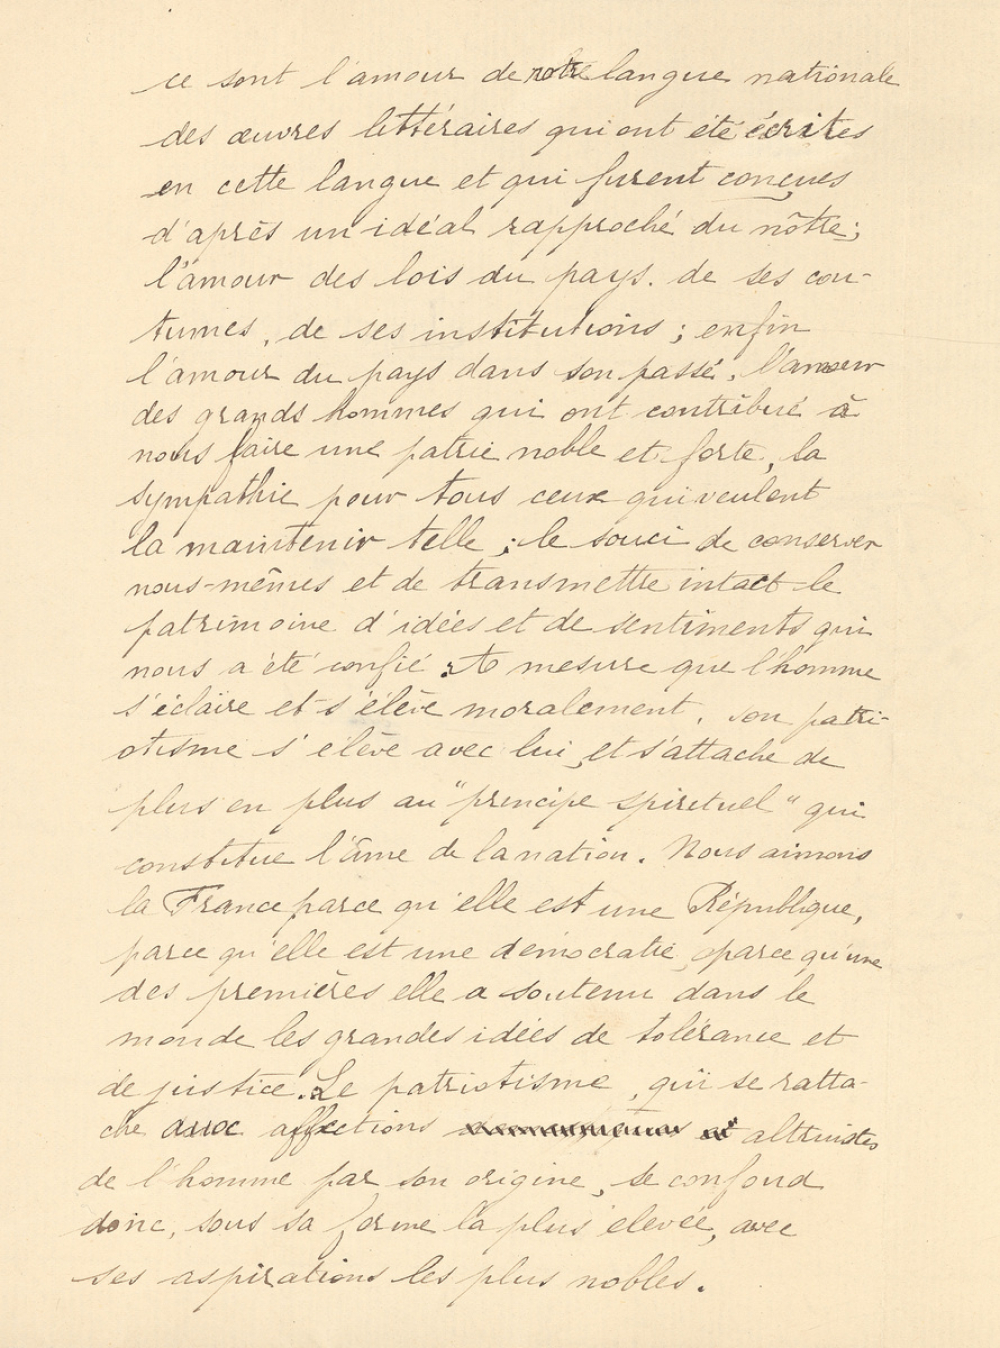 ce sont l'amour de notre langue nationale
des œuvres littéraires qui ont été écrites
en cette langue et qui furent conçues
d'après un idéal rapproché du nôtre ;
l'amour des lois du pays. de ses cou-
tumes, de ses institutions ; enfin
l'amour du pays dans son passé, l'amour
des grands hommes qui ont contribué à
nous faire une patrie noble et forte, la
sympathie pour tous ceux qui veulent
la maintenir telle ; le souci de conserver
nous-mêmes et de transmettre intact le
patrimoine d'idées et de sentiments qui
nous a été confié. A mesure que l'homme
s'éclaire et s'élève moralement, son patri-
otisme s'élève avec lui, et s'attache de
plus en plus au "principe spirituel" qui
constitue l'âme de la nation. Nous aimons
la France parce qu'elle est une République,
parce qu'elle est une démocratie, parce qu'une
des premières elle a soutenu dans le
monde les grandes idées de tolérance et
de justice. Le patriotisme, qui se ratta-
che aux affections altruistes
de l'homme par son origine, se confond
donc, sous sa forme la plus élevée, avec
ses aspirations les plus nobles.